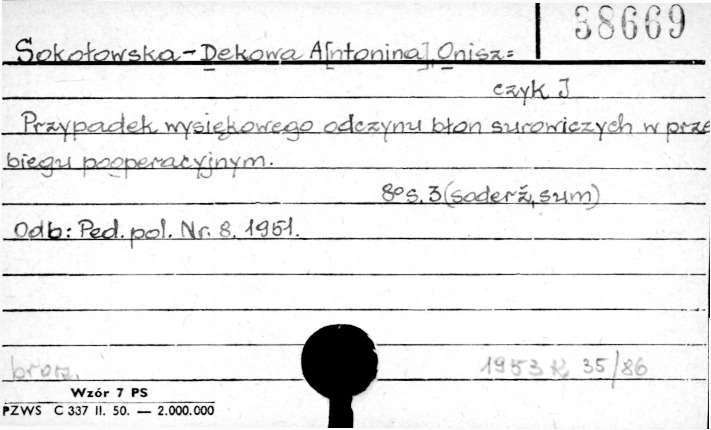 38669
Sokołowska-Dekowa A[ntonina], Onisz=
czyk J
Przypadek wysiękowego odczynu błon surowiczych w prze
biegu pooperacyjnym.
8º s. 3 (soderž, sum)
Odb: Ped. pol. Nr. 8. 1951.
brosz. 1953 K 35/86
Wzór 7 PS
PZWS C 337 II. 50. — 2.000.000